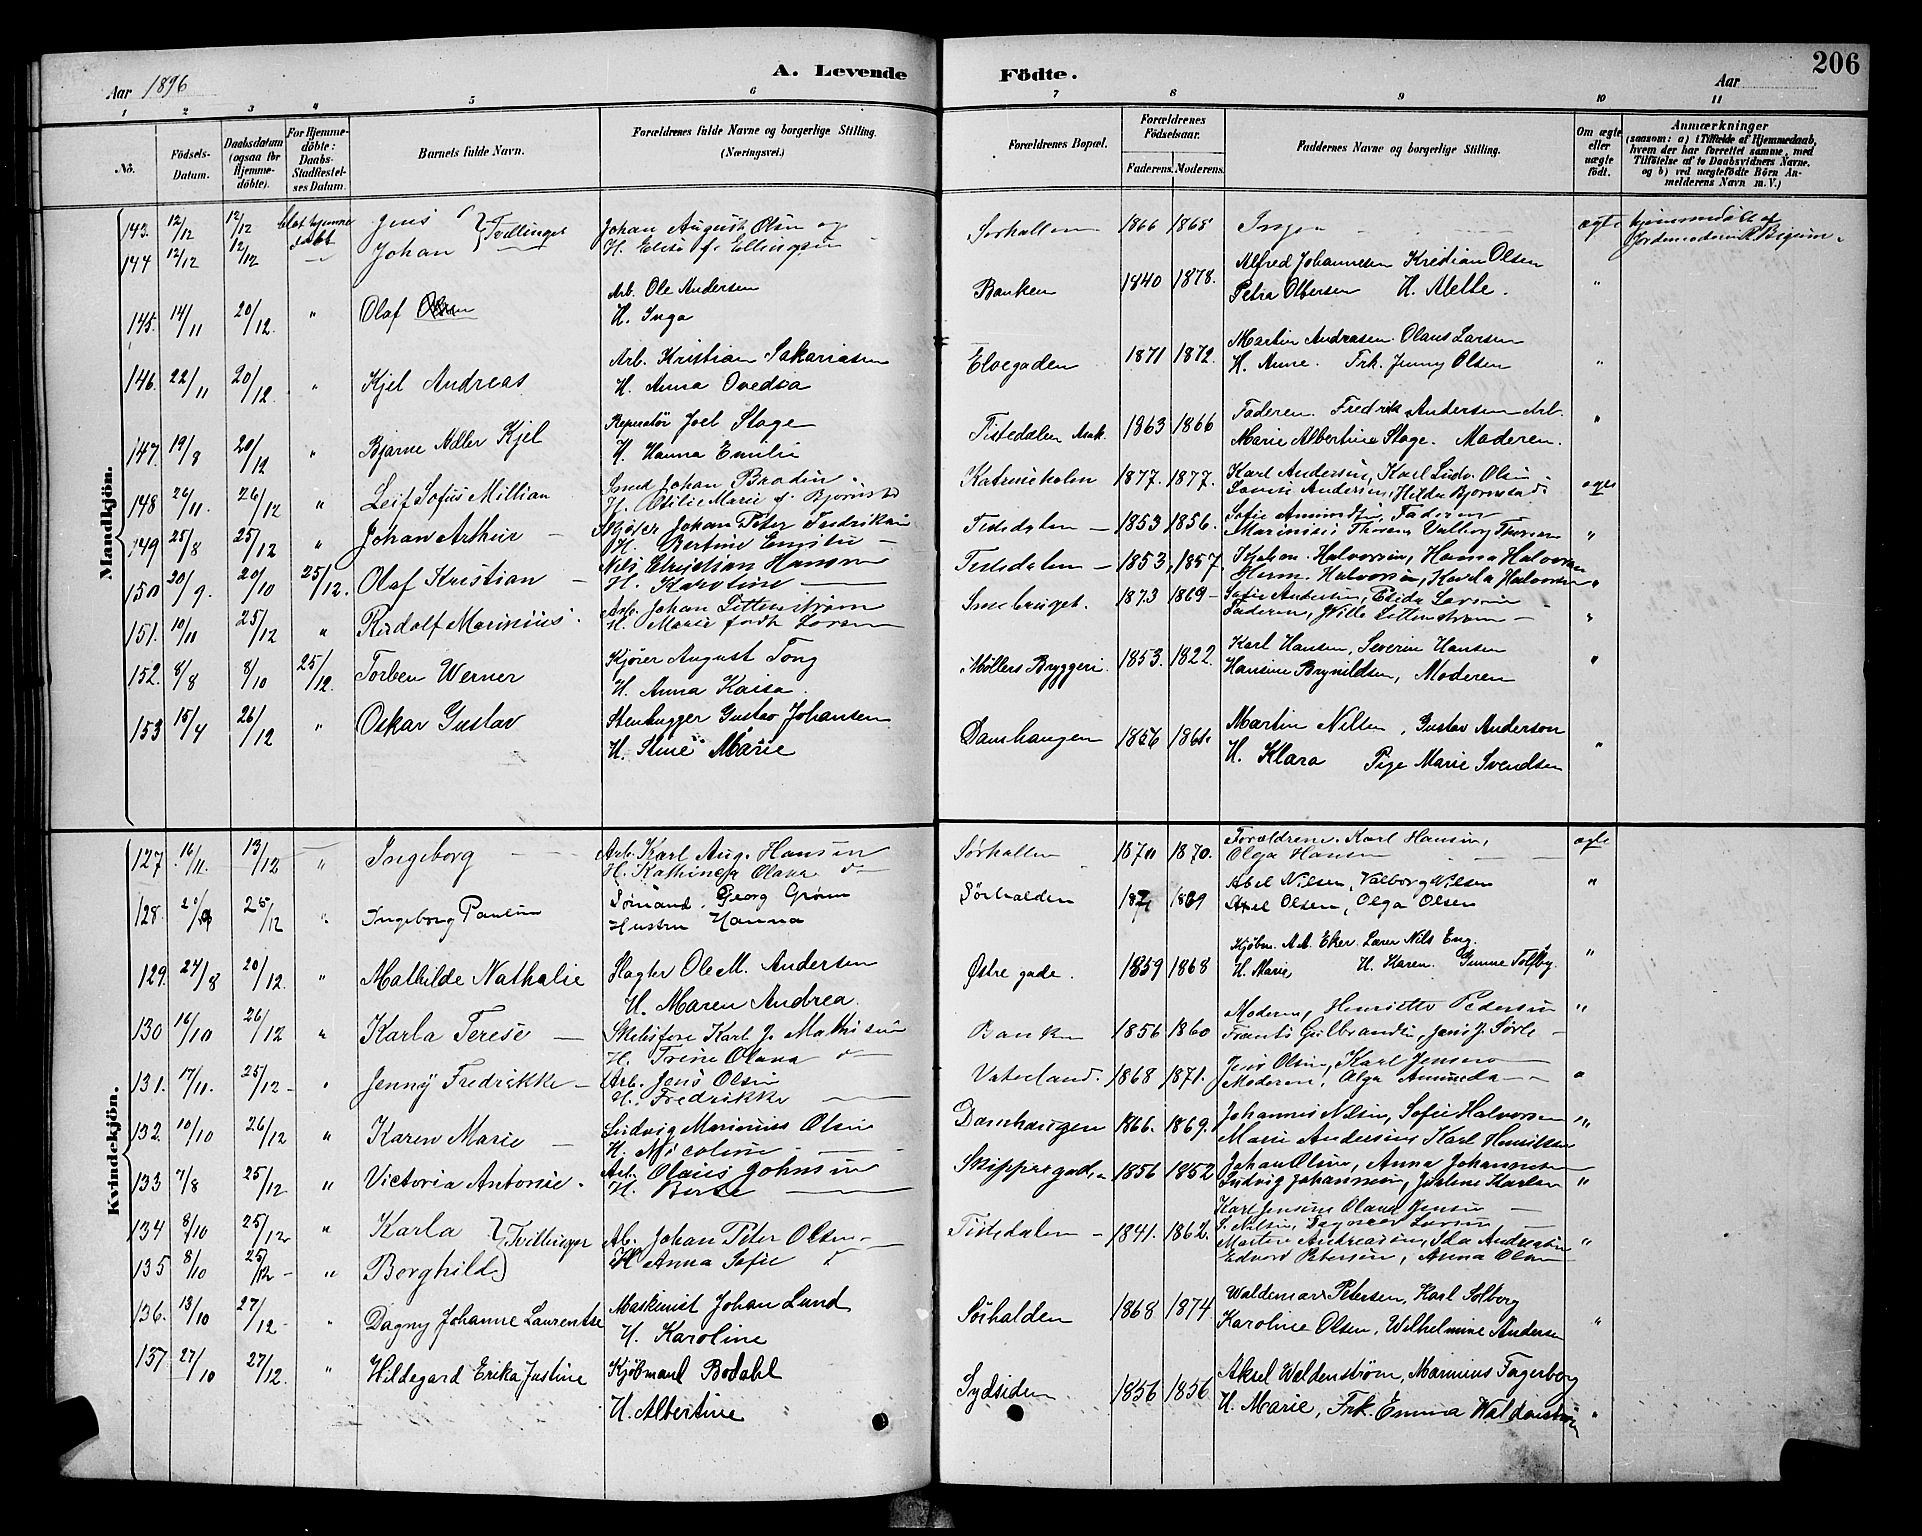 206
A. Levende Födte.
Aar 1896
Aar
1 2 3 4 5 6 7 8 9 10 11
No.
Födsels-Datum.
Daabsdatum (ogsaa for Hjemme-döbte).
For Hjemme-döbte: Daabs-Stadfæstel-ses Datum.
Barnets fulde Navn.
Forældrenes fulde Navne og borgerlige Stilling. (Næringsvei.)
Forældrenes Bopæl.
Forældrenes Födselsaar.
Faderens. Moderens.
Faddernes Navne og borgerlige Stilling.
Om ægte eller uægte födt.
Anmærkninger
(saasom: a) i Tilfælde af Hjemmedaab, hvem der har forrettet samme, med Tilföielse af to Daabsvidners Navne, og b) ved uægtefödte Börn An-melderens Navn m. V.)
Mandkjön.
143. 12/12 12/12 blot hjemme døbt Jens } Tvillinger Johan August Olsen og Sørhalden 1866 1865 Ingen ægte hjemmedøbt af
144 12/12 12/12 Johan H. Elise f. Ellingsen Jordemoderen
145. 14/11 20/12. " Olaf Arb. Ole Andersen H. Inga Banken 1840 1878. Alfred Johannesen Kristian Olsen
Petra Olbersen H. Mette. "
146. 22/11 20/12. " Kjel Andreas Arb. Kristian Sakariasen H. Anna Ovedia Elvegaden 1871 1872. Martin Andreasen. Olaus Larsen
H. Anne. Frk. Jenny Olsen "
147. 19/8 20/12 " Bjarne Adler Kjel Reperatør Joel Stage H. Hanna Emilie Tistedalen Ask. 1863 1866 Faderen. Fredrik Andersen Arb.
Marie Albertine Stage. Moderen. "
148 26/11. 26/12 " Leif Sofus Millian Smed Johan Brodin H. Otilie Marie f. Bjørnstad Katrineholm 1877. 1877. Karl Andersen, Karl Ludv. Olsen
Andersen, Hilda Bjørnstad ægte
149 25/8 25/12 " Johan Arthur Johan Peter Fredriksen H. Bertine Emilie Tistedalen 1853 1856. Sofie Amundsen, Faderen
Thoresen Valborg Thoresen "
150 20/9. 20/10 25/12. Olaf Kristian Nils Christian Hansen H. Karoline Tistedalen 1853. 1857. Halvorsen, Hanna Halvorsen
Herm. Halvorsen, Karla Halvorsen "
151. 10/11 25/12 " Rudolf Marinius Arb. Johan Littenstrøm H. Marie født Larsen 1873 1869 Sofie Andersen, Larsen
Faderen, Littenstrøm "
152. 8/8 8/10 25/12. Torben Werner Kjører August Tong H. Anna Kaisa. Møllers Bryggeri. 1853. 1822. Karl Hansen, Severin Hansen
Hansine Brynildsen, Moderen "
153 15/4 26/12 " Oskar Gustav Stenhugger Gustav Johansen H. Stine Marie Damhaugen 1856 1861. Martin Nilsen, Gustav Anderson
H. Klara Pige Marie Svendsen "
Kvindekjön.
127. 16/11. 13/12 " Ingeborg Arb. Karl Aug. Hansen H. Kathinca Olava Sørhalden 1870 1870. Forældrene. Karl Hansen,
Olga Hansen ægte
128. 25/12 " Ingeborg Pauline Sømand. Georg Grøm Hustru Hanna Sørhalden 1869 Abel Nilsen, Valborg Nilsen
Olsen, Olga Olsen "
129. 24/8 20/12. " Mathilde Nathalie Slagter Ole M. Andersen H. Maren Andrea. Østre gade. 1859 1868 Kjøbm. A.A. Eker. Lærer Nils Eng.
H. Marie, H. Karen. Gunne Tolfby. "
130 16/10 26/12 " Karla Terese Skibsføre Karl J. Mathisen H. Trine Olava Banken 1856 1860 Moderen, Henriette Pedersen
Frants Gulbrandsen, Jens J. Sørli "
131. 17/11. 25/12 " Jenny Fredrikke Arb. Jens Olsen H. Fredrikke Vaterland. 1868 1871. Jens Olsen, Karl Jensen
Moderen, Olga Amunda "
132. 10/10 26/12 " Karen Marie Ludvig Marinius Olsen H. Nicoline Damhaugen 1866. 1869. Johannes Nilsen, Sofie Halvorsen
Marie Andersen, Karl Henriksen "
133 7/8 25/12 " Victoria Antonie. Arb. Olaus Johnsen H. Berte Skippergaden 1856 1852 Johan Olsen, Anna Johannesen
Ludvig Johannesen, Karlsen "
134 8/10 25/12 " Karla } Tvillinger Ab. Johan Peter Olsen Tistedalen 1841. 1862. Karl Jensen Olava Jensen
S. Nilsen, Dagmar Larsen
135 8/10 25/12 " Borghild H. Anna Sofie Martin Andreasen, Ida Andreasen "
Edvard Petersen, Anna Olsen
136. 13/10 27/12 " Dagny Johanne Laurentse Maskinist Johan Lund H. Karoline Sørhalden 1868 1874 Waldemar Petersen, Karl Solberg
Karoline Olsen, Wilhelmine Andersen "
137 27/10 27/12. " Hildegard Erika Justine Kjøbmand Bodahl H. Albertine Sydsiden 1856 1856 Aksel Waldenstrøm, Marinius Fagerborg
H. Marie, Frk. Emma Waldenstrøm "